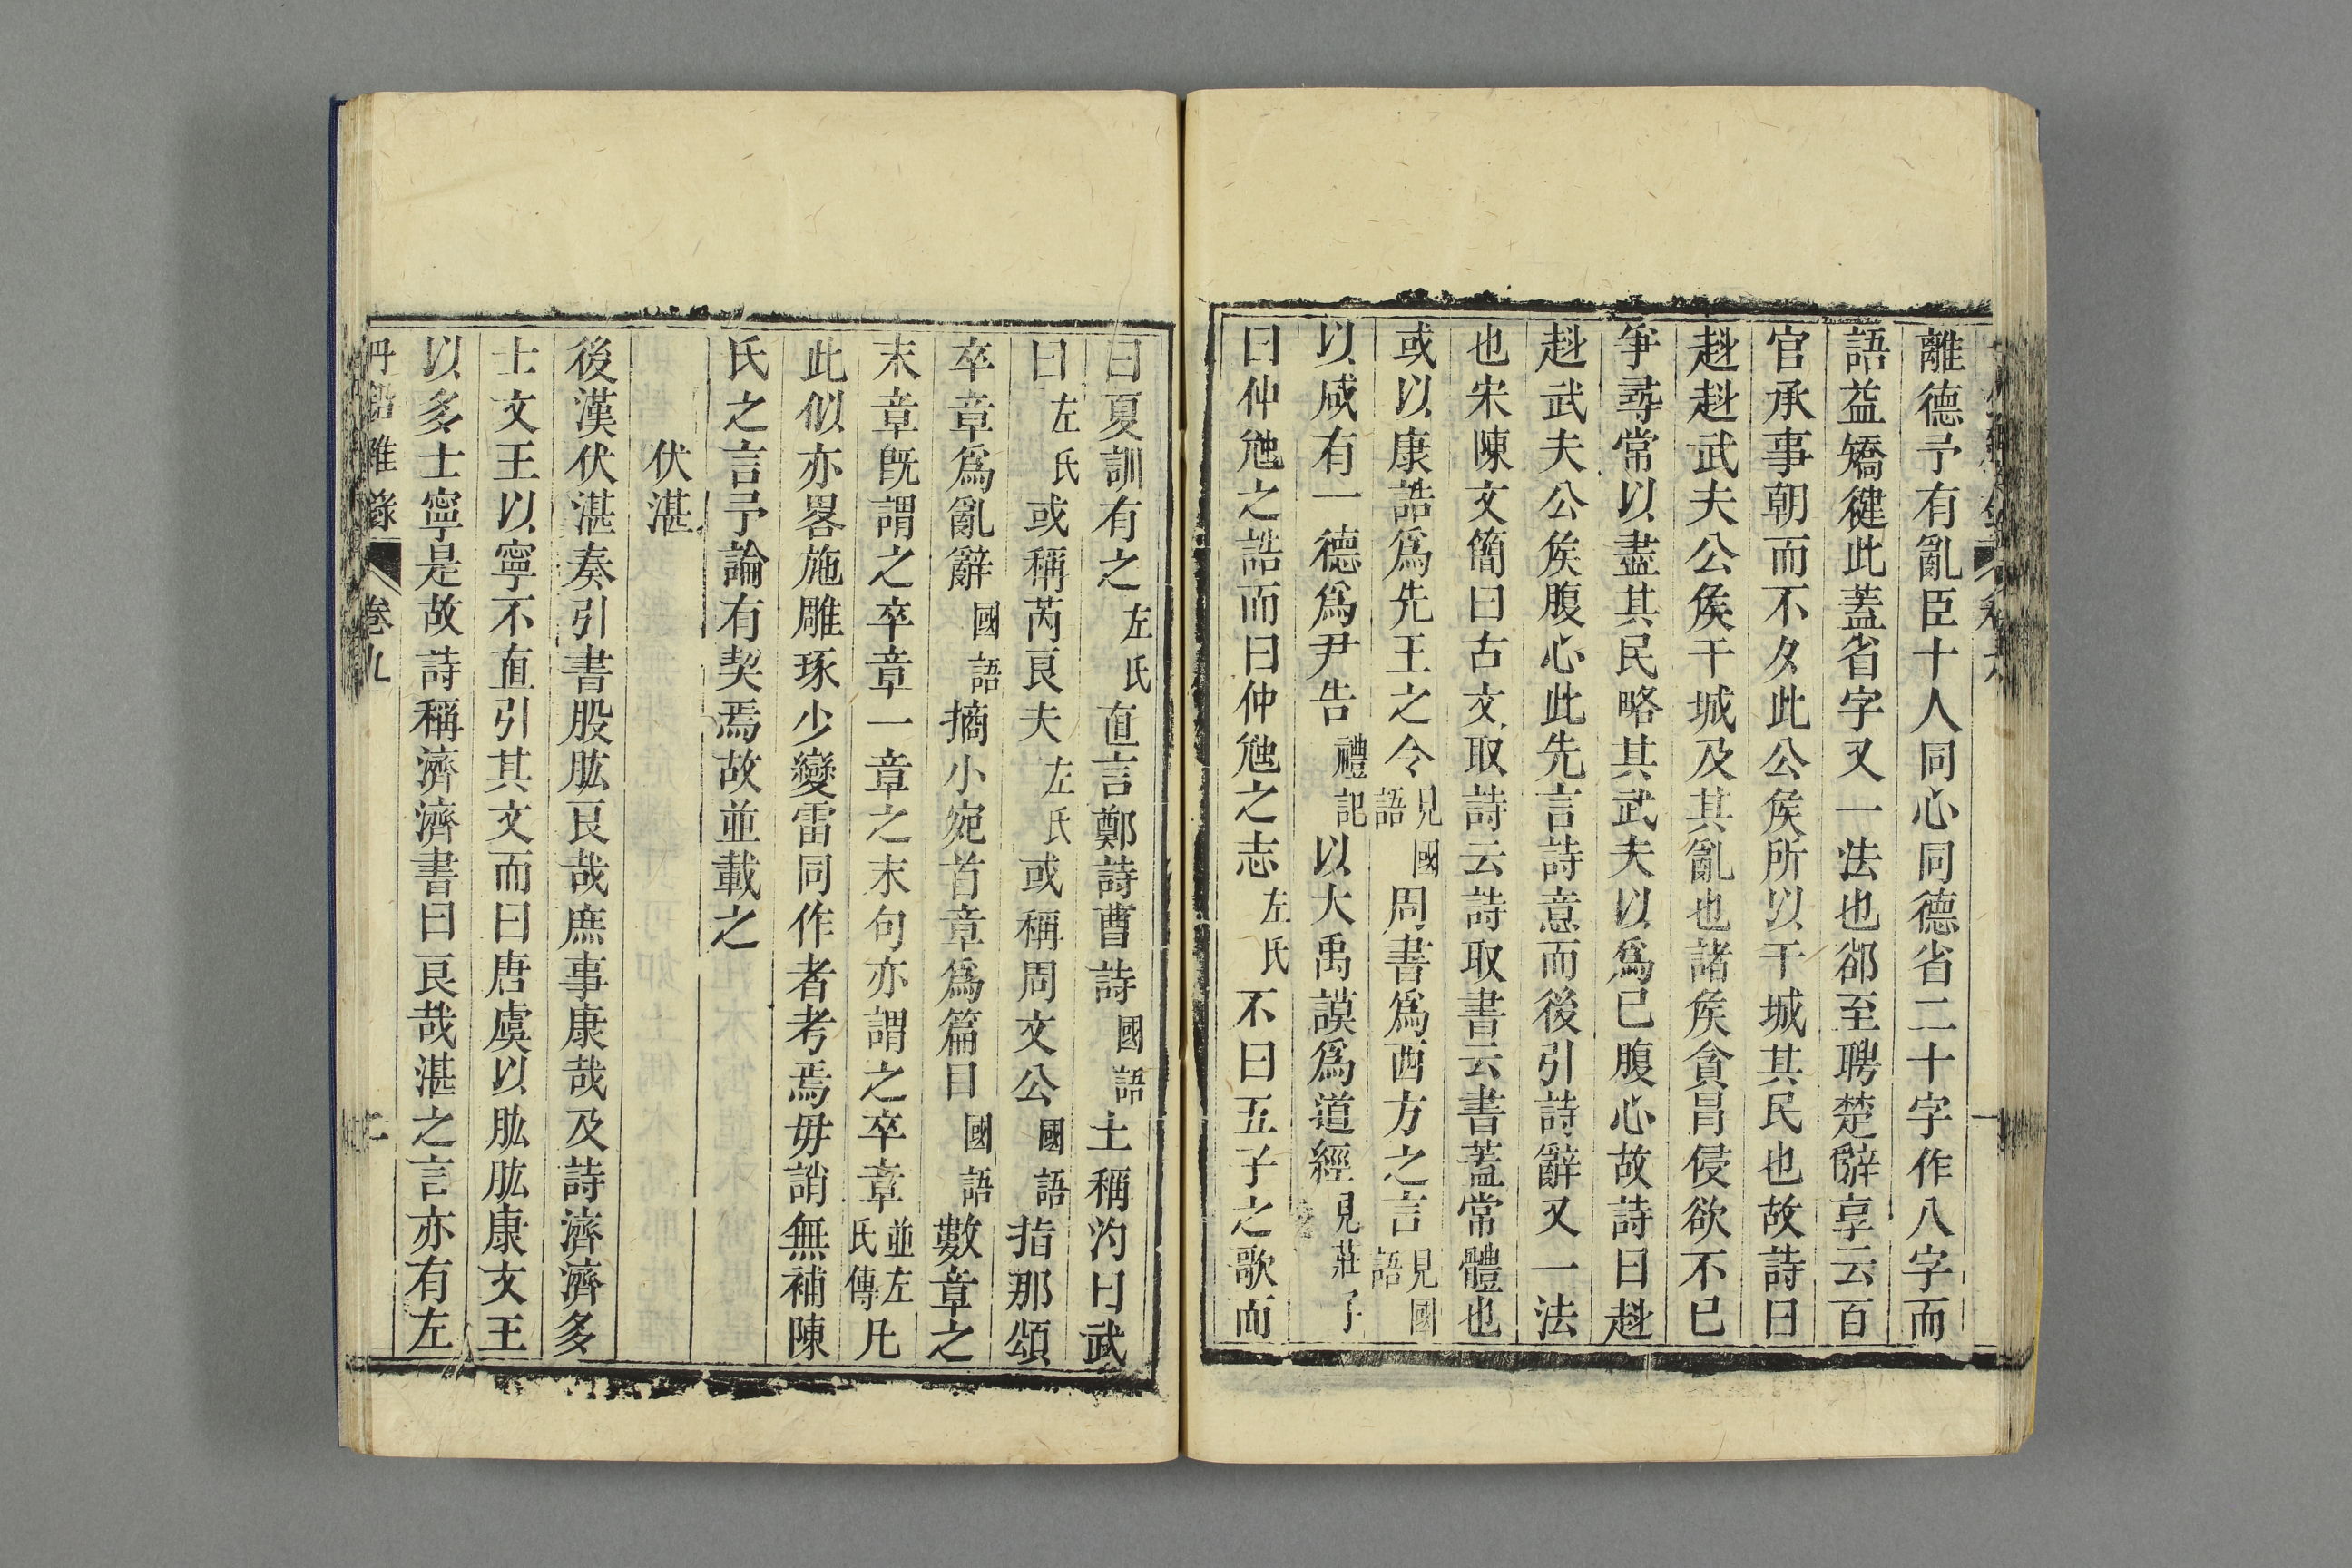 離德予有亂臣十人同心同德省二十字作八字而
語益矯健此蓋省字又一法也郤至聘楚辭享云百
官承事朝而不夕此公矦所以干城其民也故詩曰
赳赳武夫公矦干城及其亂也諸矦貪冒侵欲不已
爭尋常以盡其民略其武夫以爲已腹心故詩曰赳
赳武夫公矦腹心此先言詩意而後引詩辭又一法
也宋陳文簡曰古文取詩云詩取書云書蓋常體也
或以康誥爲先王之令見國語周書爲西方之言見國語
以咸有一德爲尹告禮記以大禹謨爲道經見莊子
曰仲虺之誥而曰仲虺之志左氏不曰五子之歌而
曰夏訓有之左氏直言鄭詩曹詩國語士稱汋曰武
曰左氏或稱芮良夫左氏或稱周文公國語指那頌
卒章爲亂辭國語摘小宛首章爲篇目國語數章之
末章旣謂之卒章一章之末句亦謂之卒章並左氏傳凡
此似亦畧施雕琢少變雷同作者考焉毋誚無補陳
氏之言予論有契焉故並載之
伏湛
後漢伏湛奏引書股肱良哉庶事康哉及詩濟濟多
士文王以寧不直引其文而曰唐虞以肱肱康文王
以多士寧是故詩稱濟濟書曰良哉湛之言亦有左
丹鉛雜錄 卷九 二